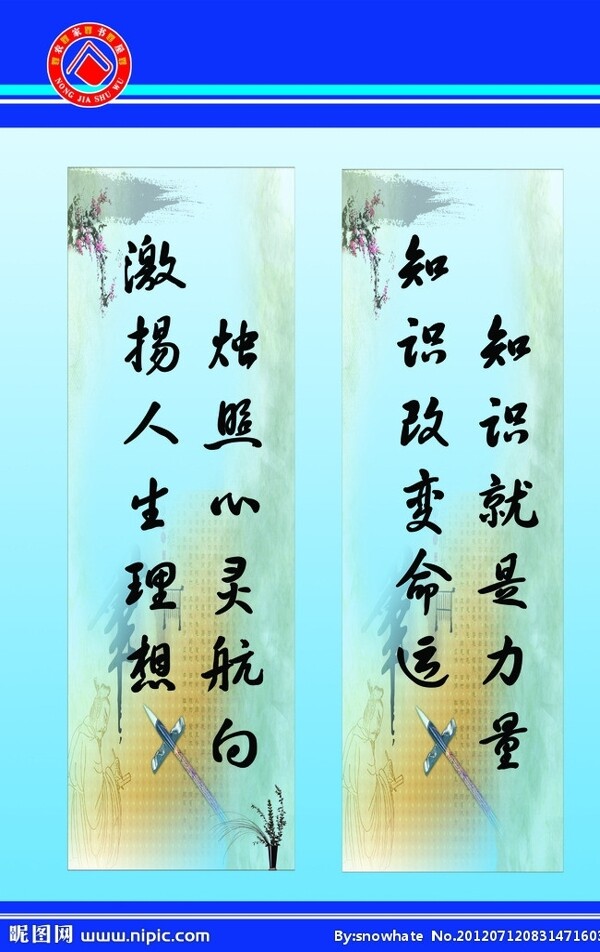 农家书屋
NONG JIA SHU WU
激扬人生理想
烛照心灵航向
知识改变命运
知识就是力量
昵图网 www.nipic.com
By:snowhate No.20120712083147160